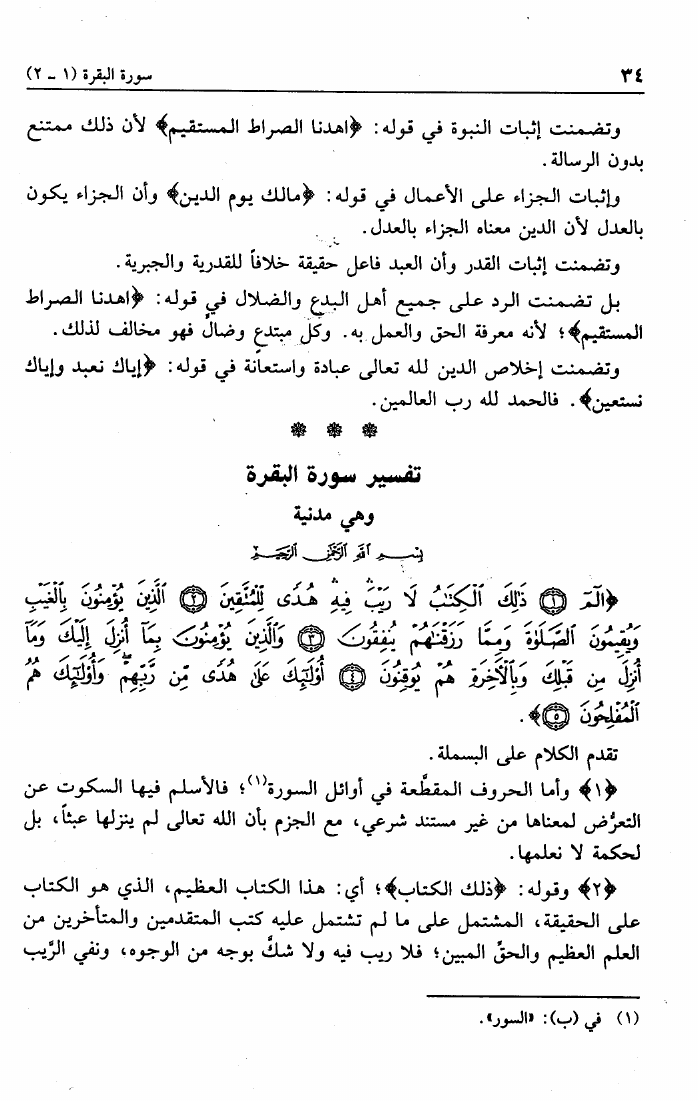 ٣٤ سورة البقرة (١ - ٢)
وتضمنت إثبات النبوة في قوله: ﴿اهدنا الصراط المستقيم﴾ لأن ذلك ممتنع
بدون الرسالة.
وإثبات الجزاء على الأعمال في قوله: ﴿مالك يوم الدين﴾ وأن الجزاء يكون
بالعدل لأن الدين معناه الجزاء بالعدل.
وتضمنت إثبات القدر وأن العبد فاعل حقيقة خلافاً للقدرية والجبرية.
بل تضمنت الرد على جميع أهل البدع والضلال في قوله: ﴿اهدنا الصراط
المستقيم﴾؛ لأنه معرفة الحق والعمل به. وكل مبتدعٍ وضالٍّ فهو مخالف لذلك.
وتضمنت إخلاص الدين لله تعالى عبادة واستعانة في قوله: ﴿إياك نعبد وإياك
نستعين﴾. فالحمد لله رب العالمين.
تفسير سورة البقرة
وهي مدنية
بِسْمِ ٱللَّهِ ٱلرَّحْمَٰنِ ٱلرَّحِيمِ
﴿الٓمٓ ١ ذَٰلِكَ ٱلْكِتَٰبُ لَا رَيْبَ ۛ فِيهِ ۛ هُدًى لِّلْمُتَّقِينَ ٢ ٱلَّذِينَ يُؤْمِنُونَ بِٱلْغَيْبِ
وَيُقِيمُونَ ٱلصَّلَوٰةَ وَمِمَّا رَزَقْنَٰهُمْ يُنفِقُونَ ٣ وَٱلَّذِينَ يُؤْمِنُونَ بِمَآ أُنزِلَ إِلَيْكَ وَمَآ
أُنزِلَ مِن قَبْلِكَ وَبِٱلْأَخِرَةِ هُمْ يُوقِنُونَ ٤ أُو۟لَٰٓئِكَ عَلَىٰ هُدًى مِّن رَّبِّهِمْ ۖ وَأُو۟لَٰٓئِكَ هُمُ
ٱلْمُفْلِحُونَ ٥﴾.
تقدم الكلام على البسملة.
﴿١﴾ وأما الحروف المقطَّعة في أوائل السورة(١)؛ فالأسلم فيها السكوت عن
التعرُّض لمعناها من غير مستند شرعي، مع الجزم بأن الله تعالى لم ينزلها عبثاً، بل
لحكمة لا نعلمها.
﴿٢﴾ وقوله: ﴿ذلك الكتاب﴾؛ أي: هذا الكتاب العظيم، الذي هو الكتاب
على الحقيقة، المشتمل على ما لم تشتمل عليه كتب المتقدمين والمتأخرين من
العلم العظيم والحقِّ المبين؛ فلا ريب فيه ولا شكَّ بوجه من الوجوه، ونفي الرَّيب
(١) في (ب): «السور».